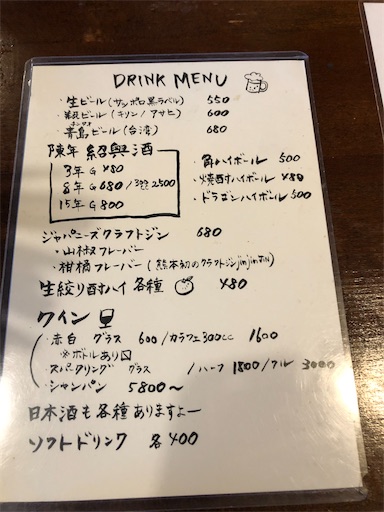 DRINK MENU
・生ビール(サッポロ黒ラベル) 550
・瓶ビール(キリン/アサヒ) 600
チンタオ
・青島ビール(台湾) 680
陳年 紹興酒
3年 G 480
8年 G 680/ 2500
15年 G 800
・角ハイボール 500
・焼酎ハイボール 480
・ドラゴンハイボール 500
ジャパニーズクラフトジン 680
・山椒フレーバー
・柑橘フレーバー(熊本初のクラフトジンjin jin GIN)
生絞り酎ハイ 各種 480
ワイン
・赤白 グラス 600/カラフェ300cc 1600
※ボトルあり〼
・スパークリング グラス /ハーフ 1800/フル 3000
・シャンパン 5800〜
日本酒も各種ありますよー
ソフトドリンク 各400